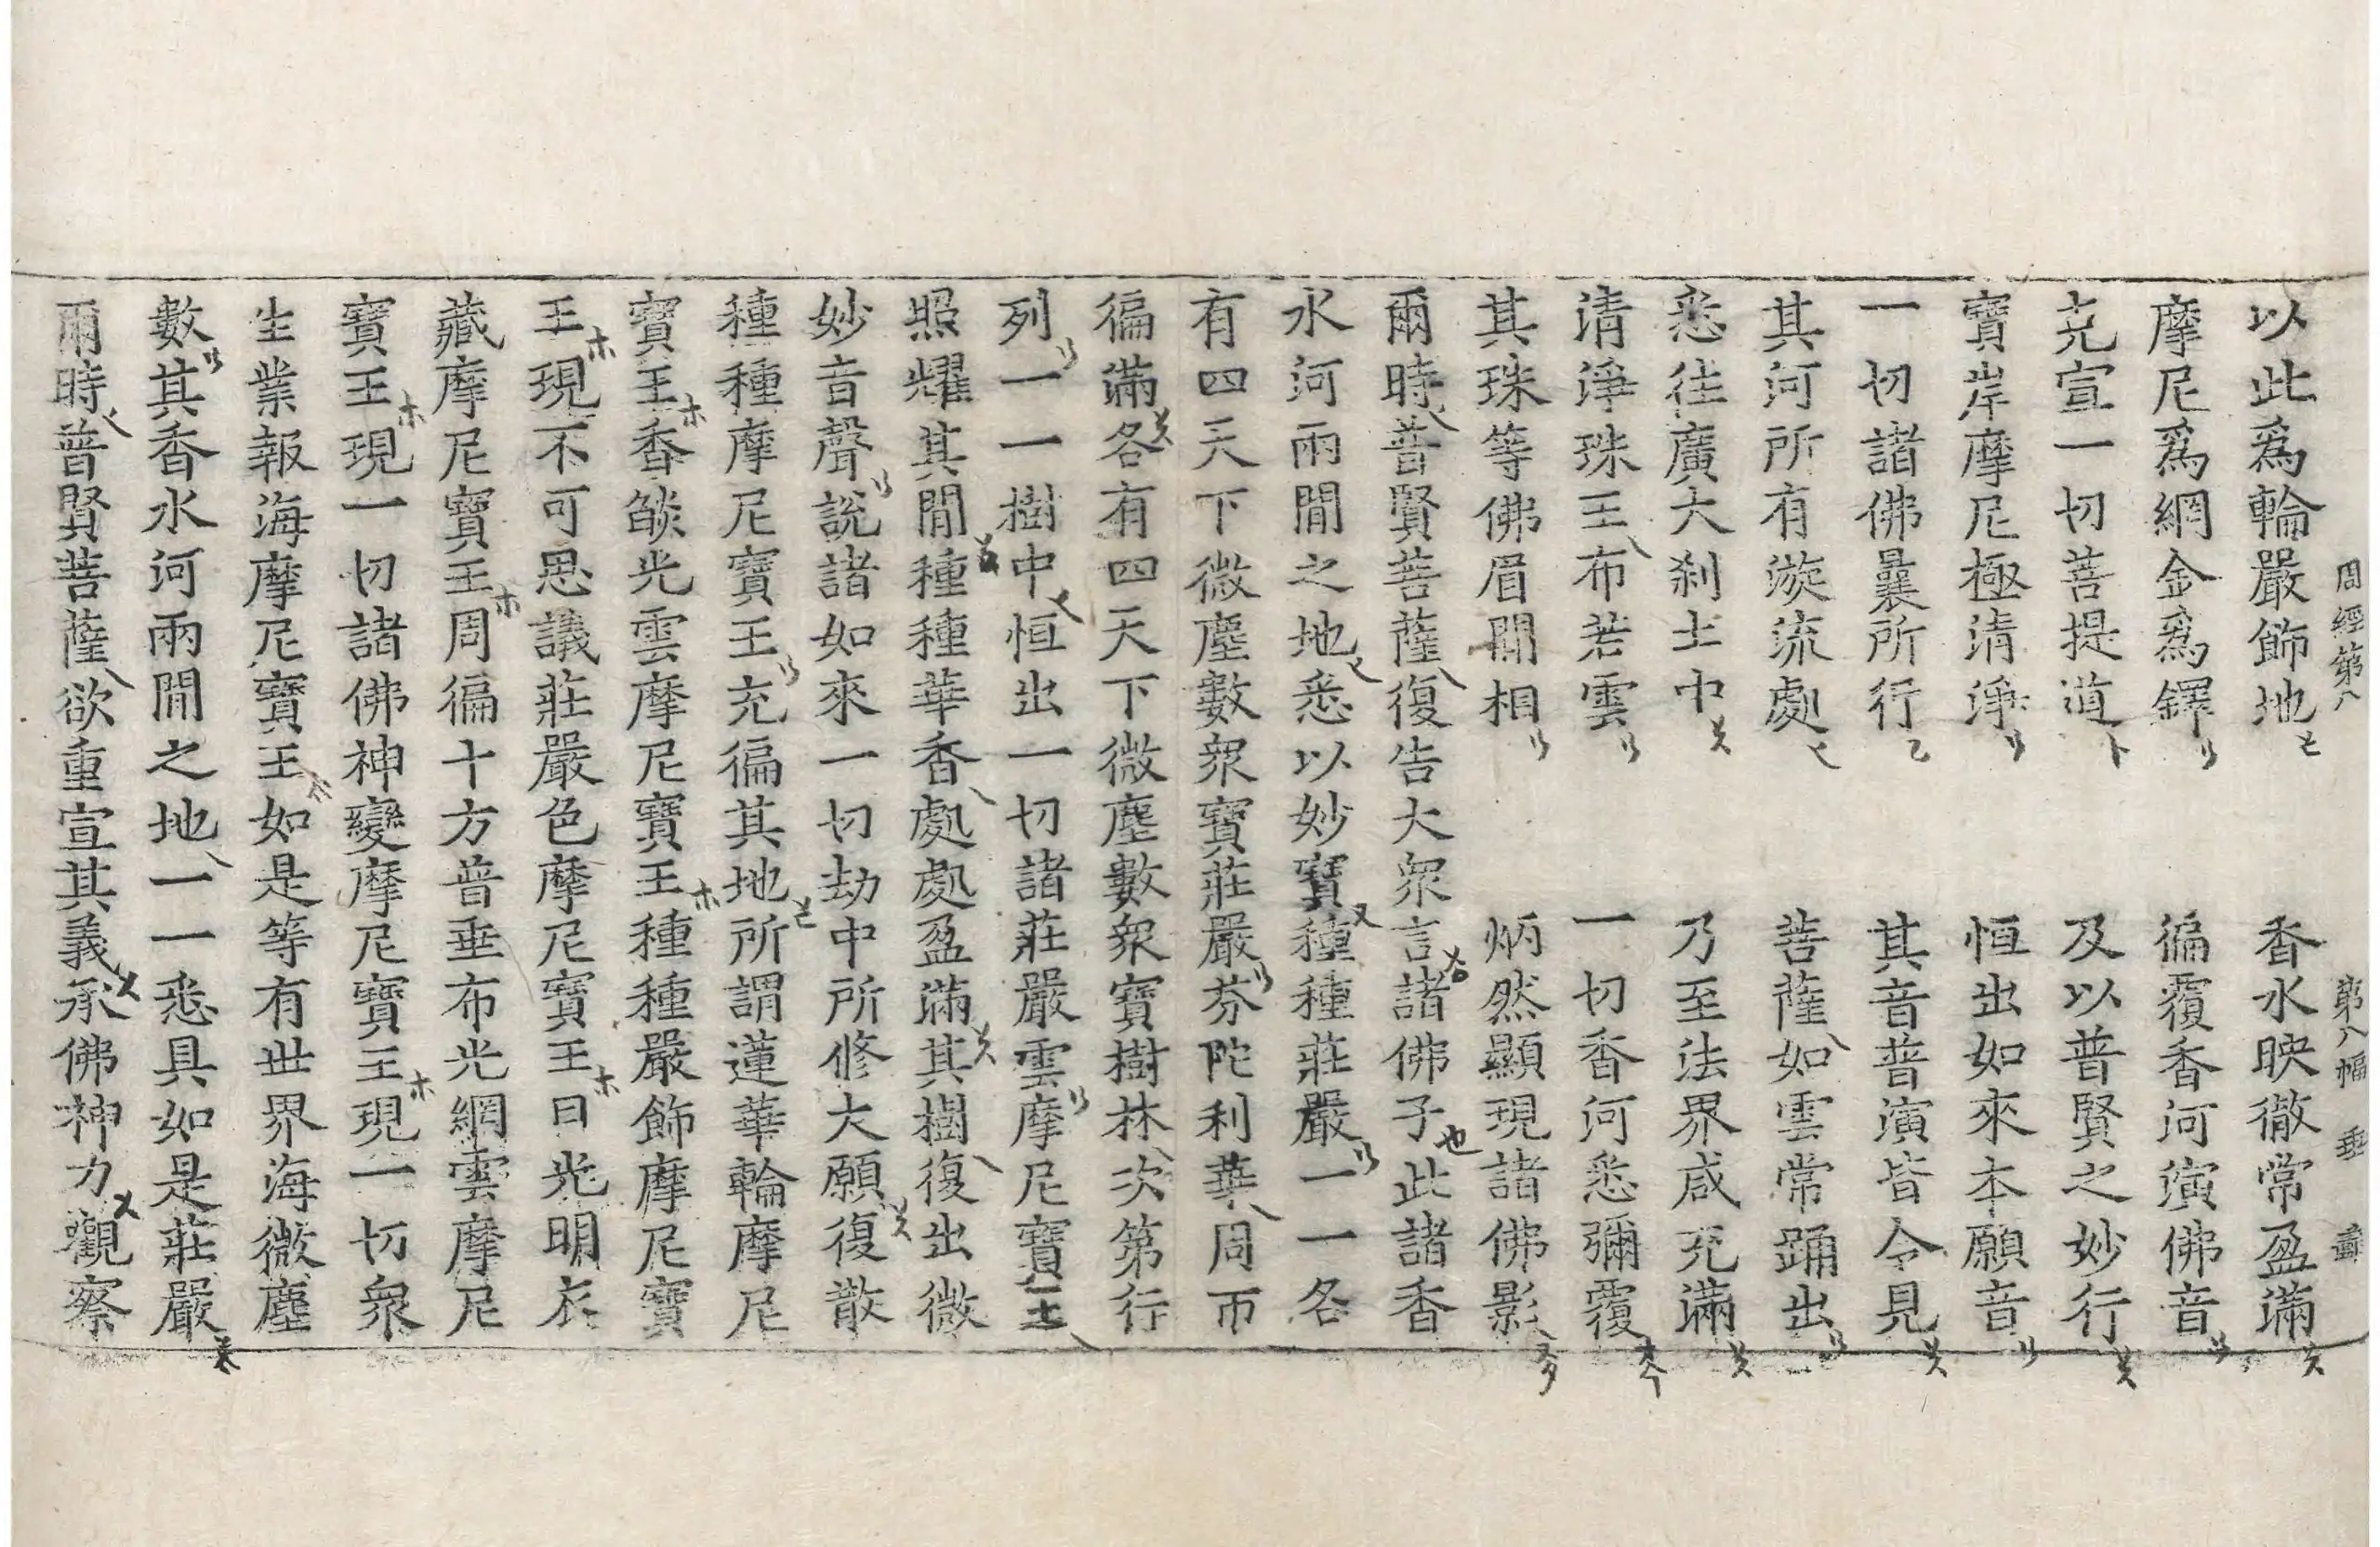 周經第八 第八幅 垂
以此爲輪嚴飾地 香水映徹常盈滿
摩尼爲網金爲鐸 徧覆香河演佛音
克宣一切菩提道 及以普賢之妙行
寶岸摩尼極清淨 恒出如來本願音
一切諸佛曩所行 其音普演皆令見
其河所有漩流處 菩薩如雲常踊出
悉往廣大刹土中 乃至法界咸充滿
清淨珠王布若雲 一切香河悉彌覆
其珠等佛眉間相 炳然顯現諸佛影
爾時普賢菩薩復告大衆言諸佛子此諸香
水河兩間之地悉以妙寶種種莊嚴一一各
有四天下微塵數衆寶莊嚴芬陀利華周帀
徧滿各有四天下微塵數衆寶樹林次第行
列一一樹中恒出一切諸莊嚴雲摩尼寶王
照耀其間種種華香處處盈滿其樹復出微
妙音聲說諸如來一切劫中所修大願復散
種種摩尼寶王充徧其地所謂蓮華輪摩尼
寶王香燄光雲摩尼寶王種種嚴飾摩尼寶
王現不可思議莊嚴色摩尼寶王日光明衣
藏摩尼寶王周徧十方普垂布光網雲摩尼
寶王現一切諸佛神變摩尼寶王現一切衆
生業報海摩尼寶王如是等有世界海微塵
數其香水河兩間之地一一悉具如是莊嚴
爾時普賢菩薩欲重宣其義承佛神力觀察